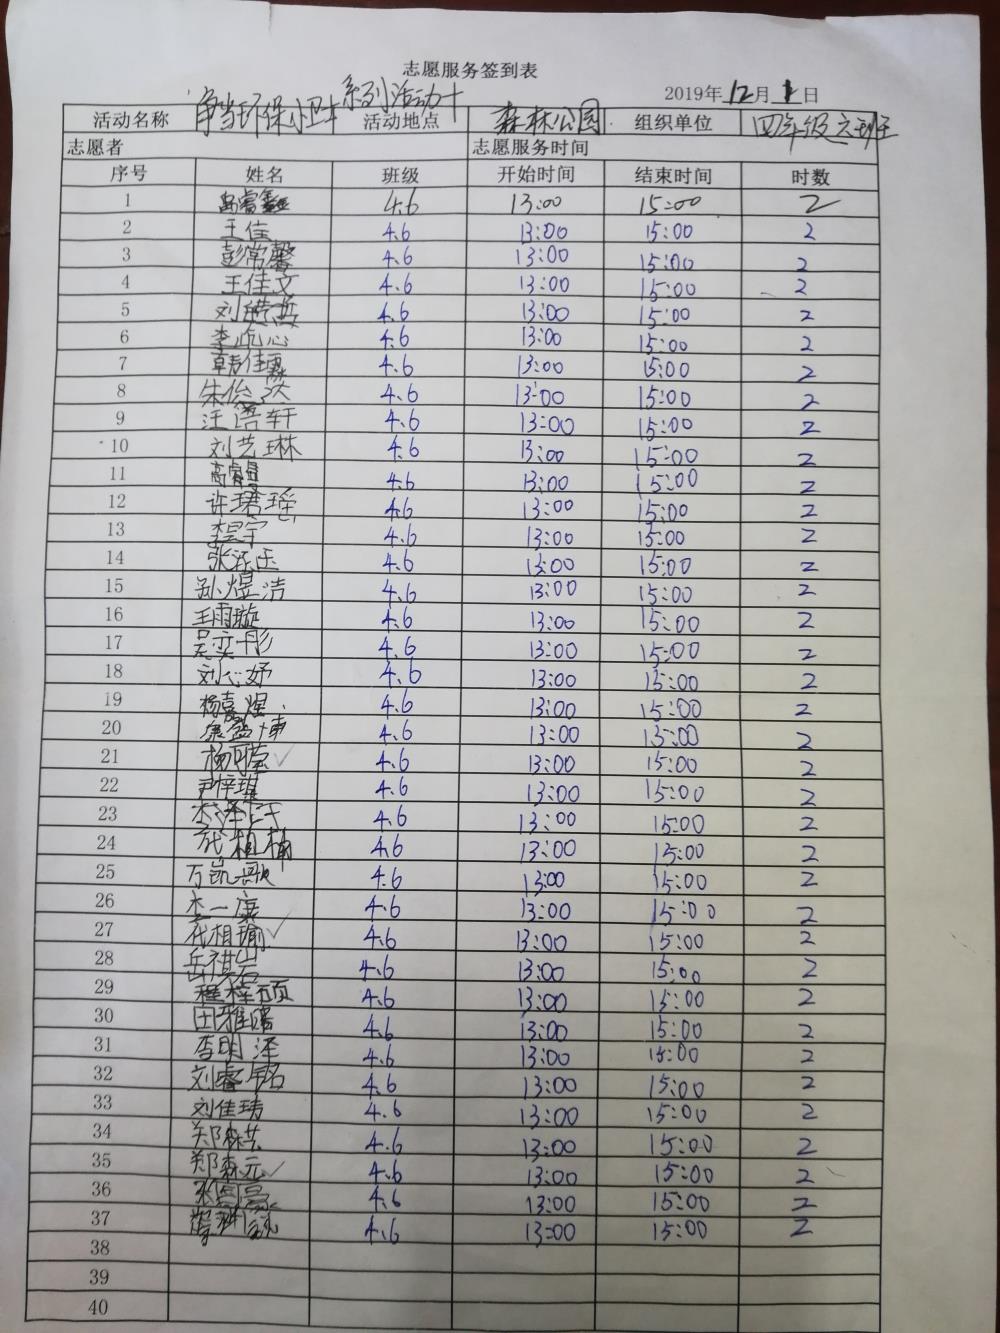 志愿服务签到表
2019年12月1日
活动名称 争当环保小卫士系列活动十 活动地点 森林公园 组织单位 四年级六班
志愿者 志愿服务时间
序号 姓名 班级 开始时间 结束时间 时数
1 4.6 13:00 15:00 2
2 王佳 4.6 13:00 15:00 2
3 彭常馨 4.6 13:00 15:00 2
4 王佳文 4.6 13:00 15:00 2
5 刘皓哲 4.6 13:00 15:00 2
6 4.6 13:00 15:00 2
7 韩佳霖 4.6 13:00 15:00 2
8 4.6 13:00 15:00 2
9 汪语轩 4.6 13:00 15:00 2
10 刘艺琳 4.6 13:00 15:00 2
11 4.6 13:00 15:00 2
12 许珺瑶 4.6 13:00 15:00 2
13 李昊宇 4.6 13:00 15:00 2
14 4.6 13:00 15:00 2
15 孙煜洁 4.6 13:00 15:00 2
16 王雨璇 4.6 13:00 15:00 2
17 吴奕彤 4.6 13:00 15:00 2
18 刘心妤 4.6 13:00 15:00 2
19 杨嘉煜 4.6 13:00 15:00 2
20 4.6 13:00 15:00 2
21 杨可莹 4.6 13:00 15:00 2
22 尹梓琪 4.6 13:00 15:00 2
23 4.6 13:00 15:00 2
24 代相楠 4.6 13:00 15:00 2
25 万凯歌 4.6 13:00 15:00 2
26 4.6 13:00 15:00 2
27 代相瑜 4.6 13:00 15:00 2
28 岳祺岩 4.6 13:00 15:00 2
29 程梓硕 4.6 13:00 15:00 2
30 田雅曦 4.6 13:00 15:00 2
31 李明泽 4.6 13:00 15:00 2
32 刘睿铭 4.6 13:00 15:00 2
33 刘佳玮 4.6 13:00 15:00 2
34 郑森艺 4.6 13:00 15:00 2
35 郑森元 4.6 13:00 15:00 2
36 4.6 13:00 15:00 2
37 4.6 13:00 15:00 2
38
39
40